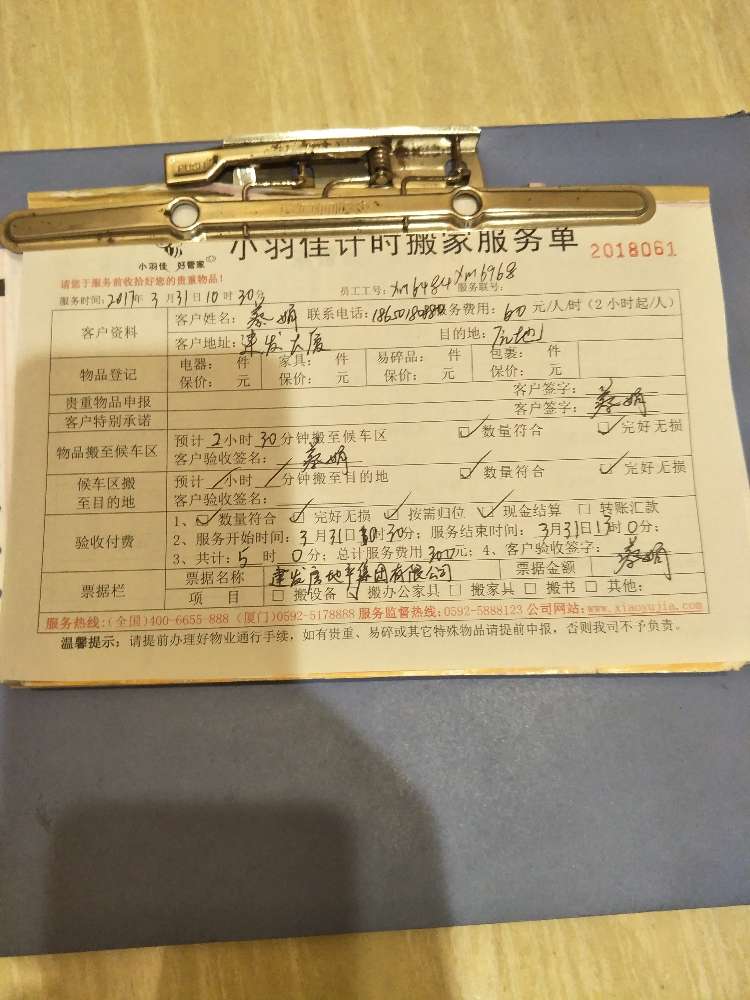 小羽佳计时搬家服务单 2018061
小羽佳 好管家
请您于服务前收拾好您的贵重物品！
服务时间：2017年3月31日10时30分 员工工号：Xm6484 Xm6968 服务联号：
客户资料 客户姓名：蔡娟 联系电话： 服务费用：60元/人/时（2小时起/人）
客户地址：建发大厦 目的地：
物品登记 电器： 件 家具： 件 易碎品： 件 包裹： 件
保价： 元 保价： 元 保价： 元 保价： 元
贵重物品申报 客户签字：
客户特别承诺 客户签字：蔡娟
物品搬至候车区 预计2小时30分钟搬至候车区 ☑数量符合 ☑完好无损
客户验收签名：蔡娟
候车区搬至目的地 预计/小时/分钟搬至目的地 ☑数量符合 ☑完好无损
客户验收签名：
验收付费 1、☑数量符合 ☑完好无损 ☑按需归位 ☑现金结算 □转账汇款
2、服务开始时间：3月31日10时30分；服务结束时间：3月31日13时0分；
3、共计：5时0分；总计服务费用300元；4、客户验收签字：蔡娟
票据栏 票据名称 建发房地产集团有限公司 票据金额
项 目 □搬设备 □搬办公家具 □搬家具 □搬书 □其他：
服务热线：(全国)400-6655-888 (厦门)0592-5178888 服务监督热线：0592-5888123 公司网站：www.xiaoyujia.com
温馨提示：请提前办理好物业通行手续，如有贵重、易碎或其它特殊物品请提前申报，否则我司不予负责。